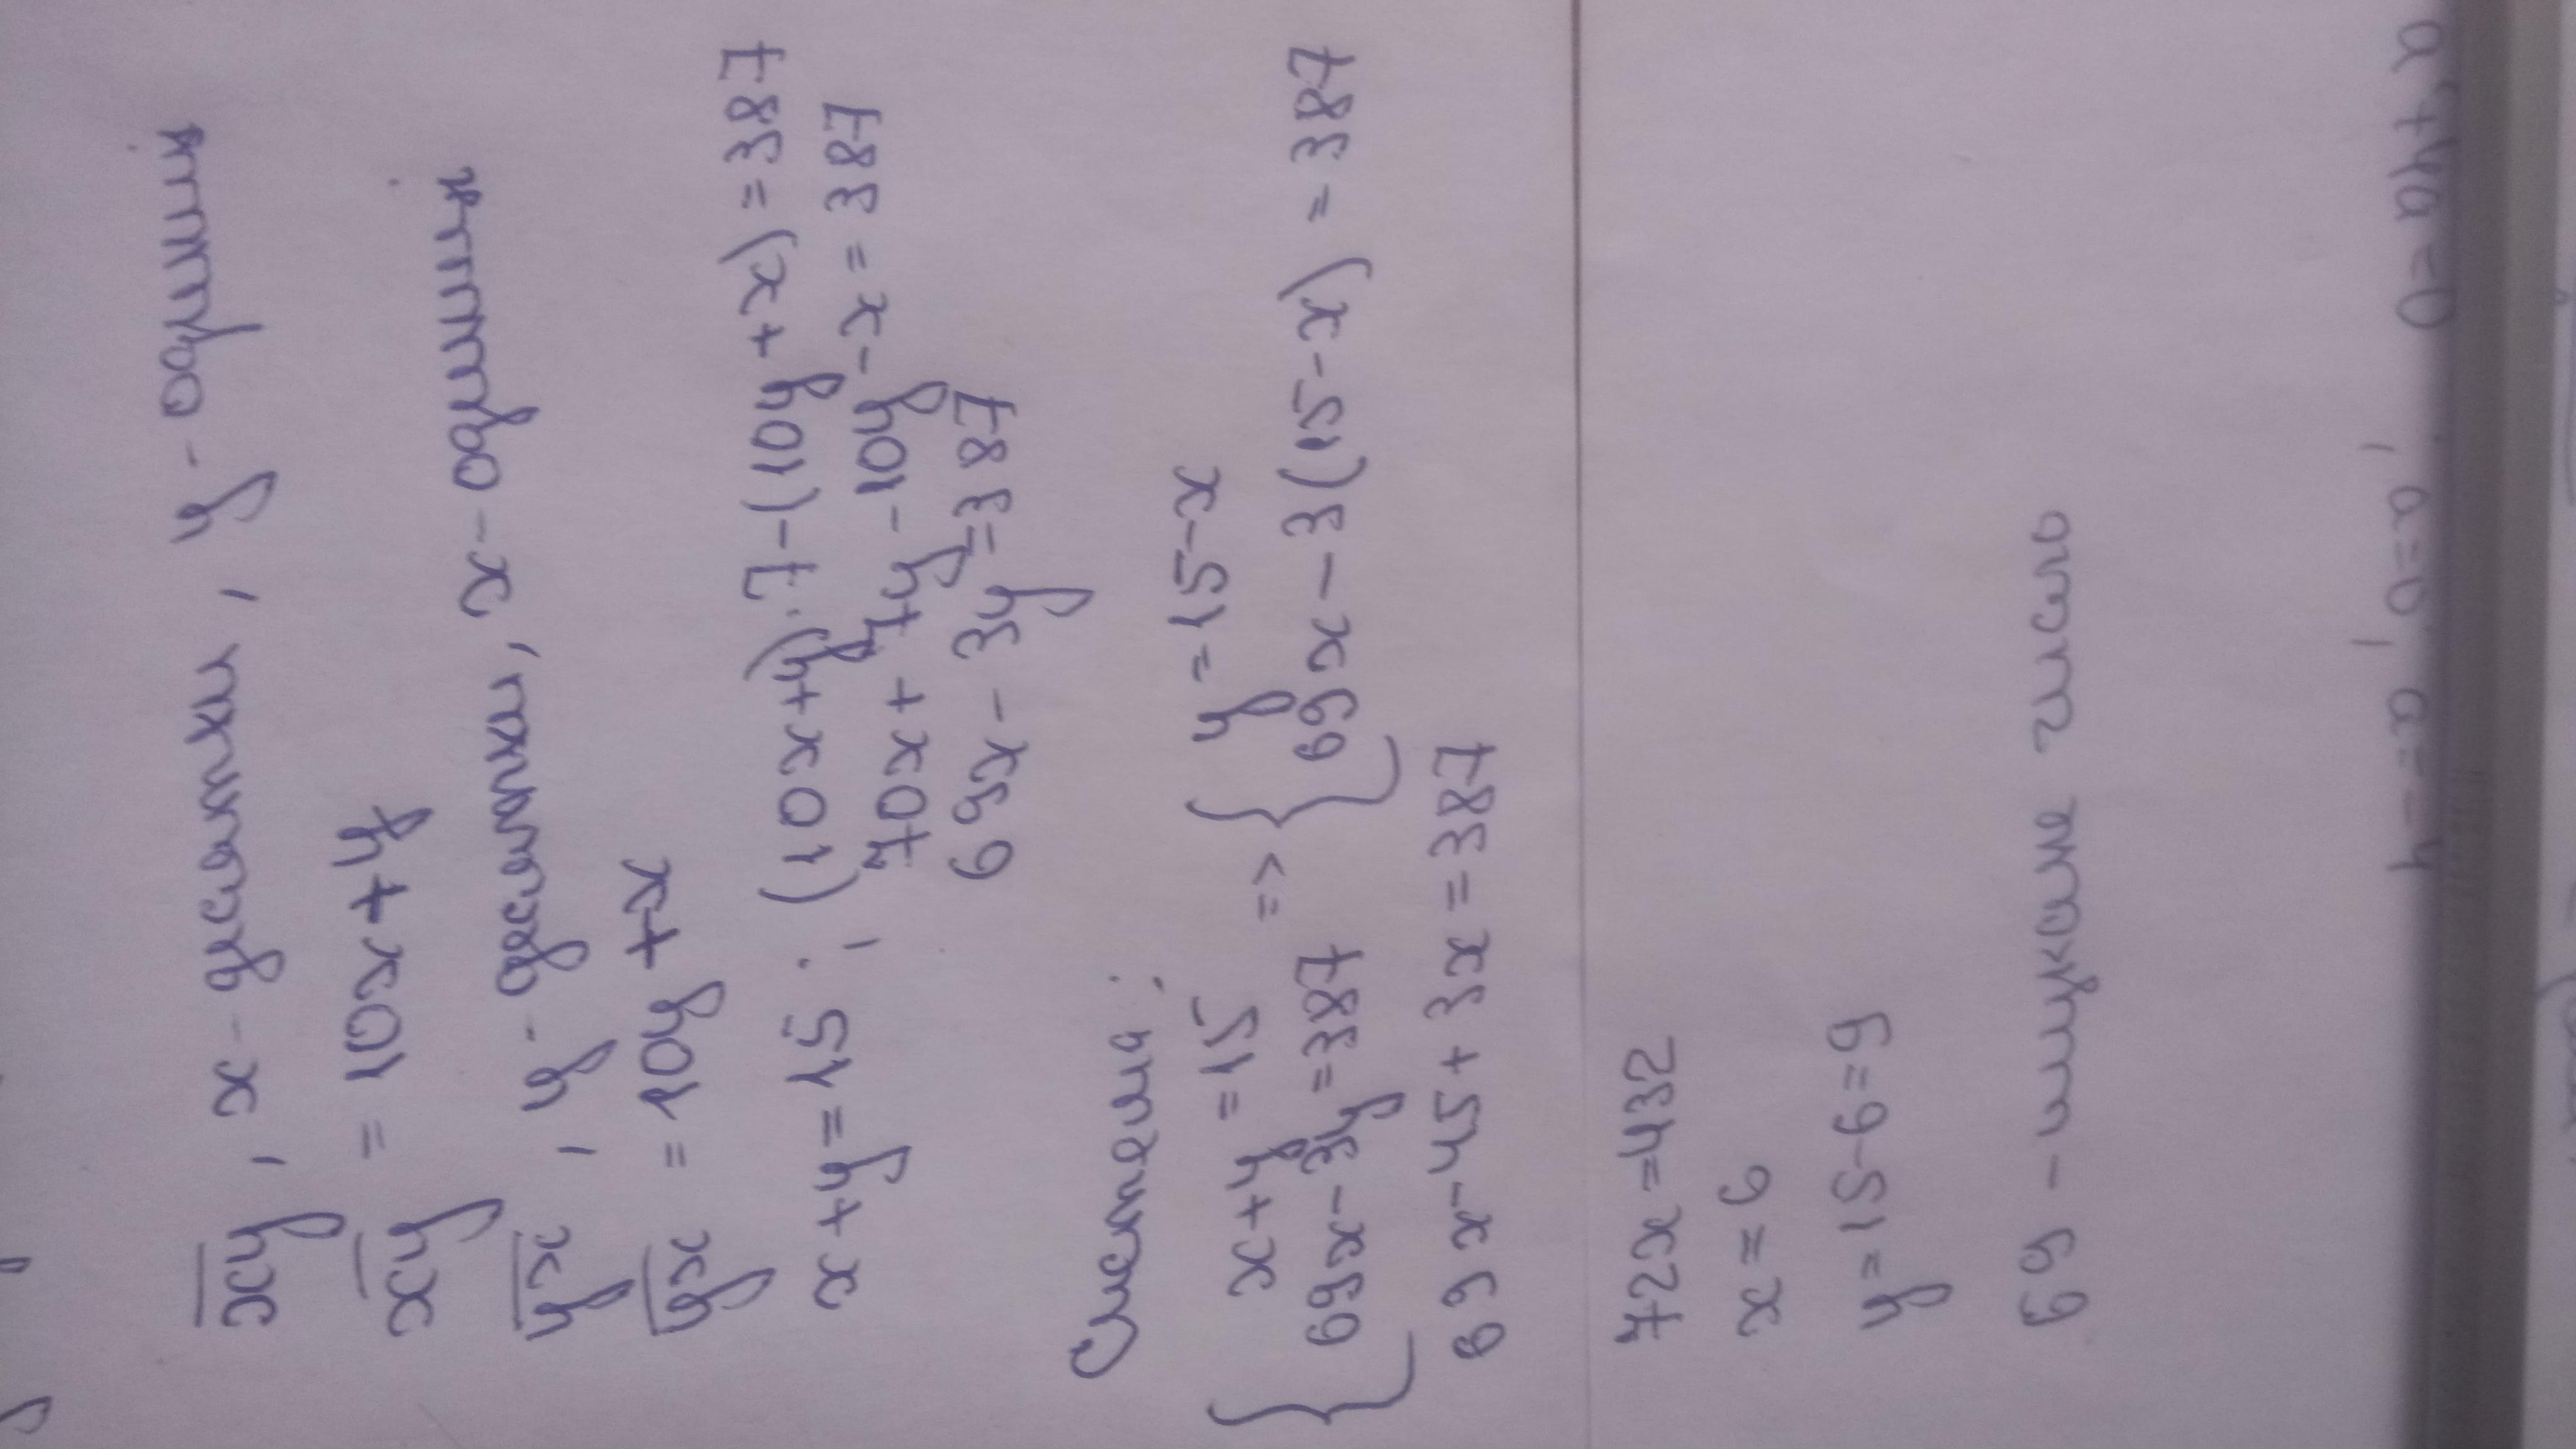 xy, x - десятки, y - одиниці
xy = 10x+y
yx, y - десятки, x - одиниці
yx = 10y+x
x+y=15; (10x+y)·7-(10y+x)=387
70x+7y-10y-x=387
69x-3y=387
Система:
{ x+y=15 => { y=15-x
69x-3y=387 69x-3(15-x)=387
69x-45+3x=387
72x=432
x=6
y=15-6=9
69 - шукане число